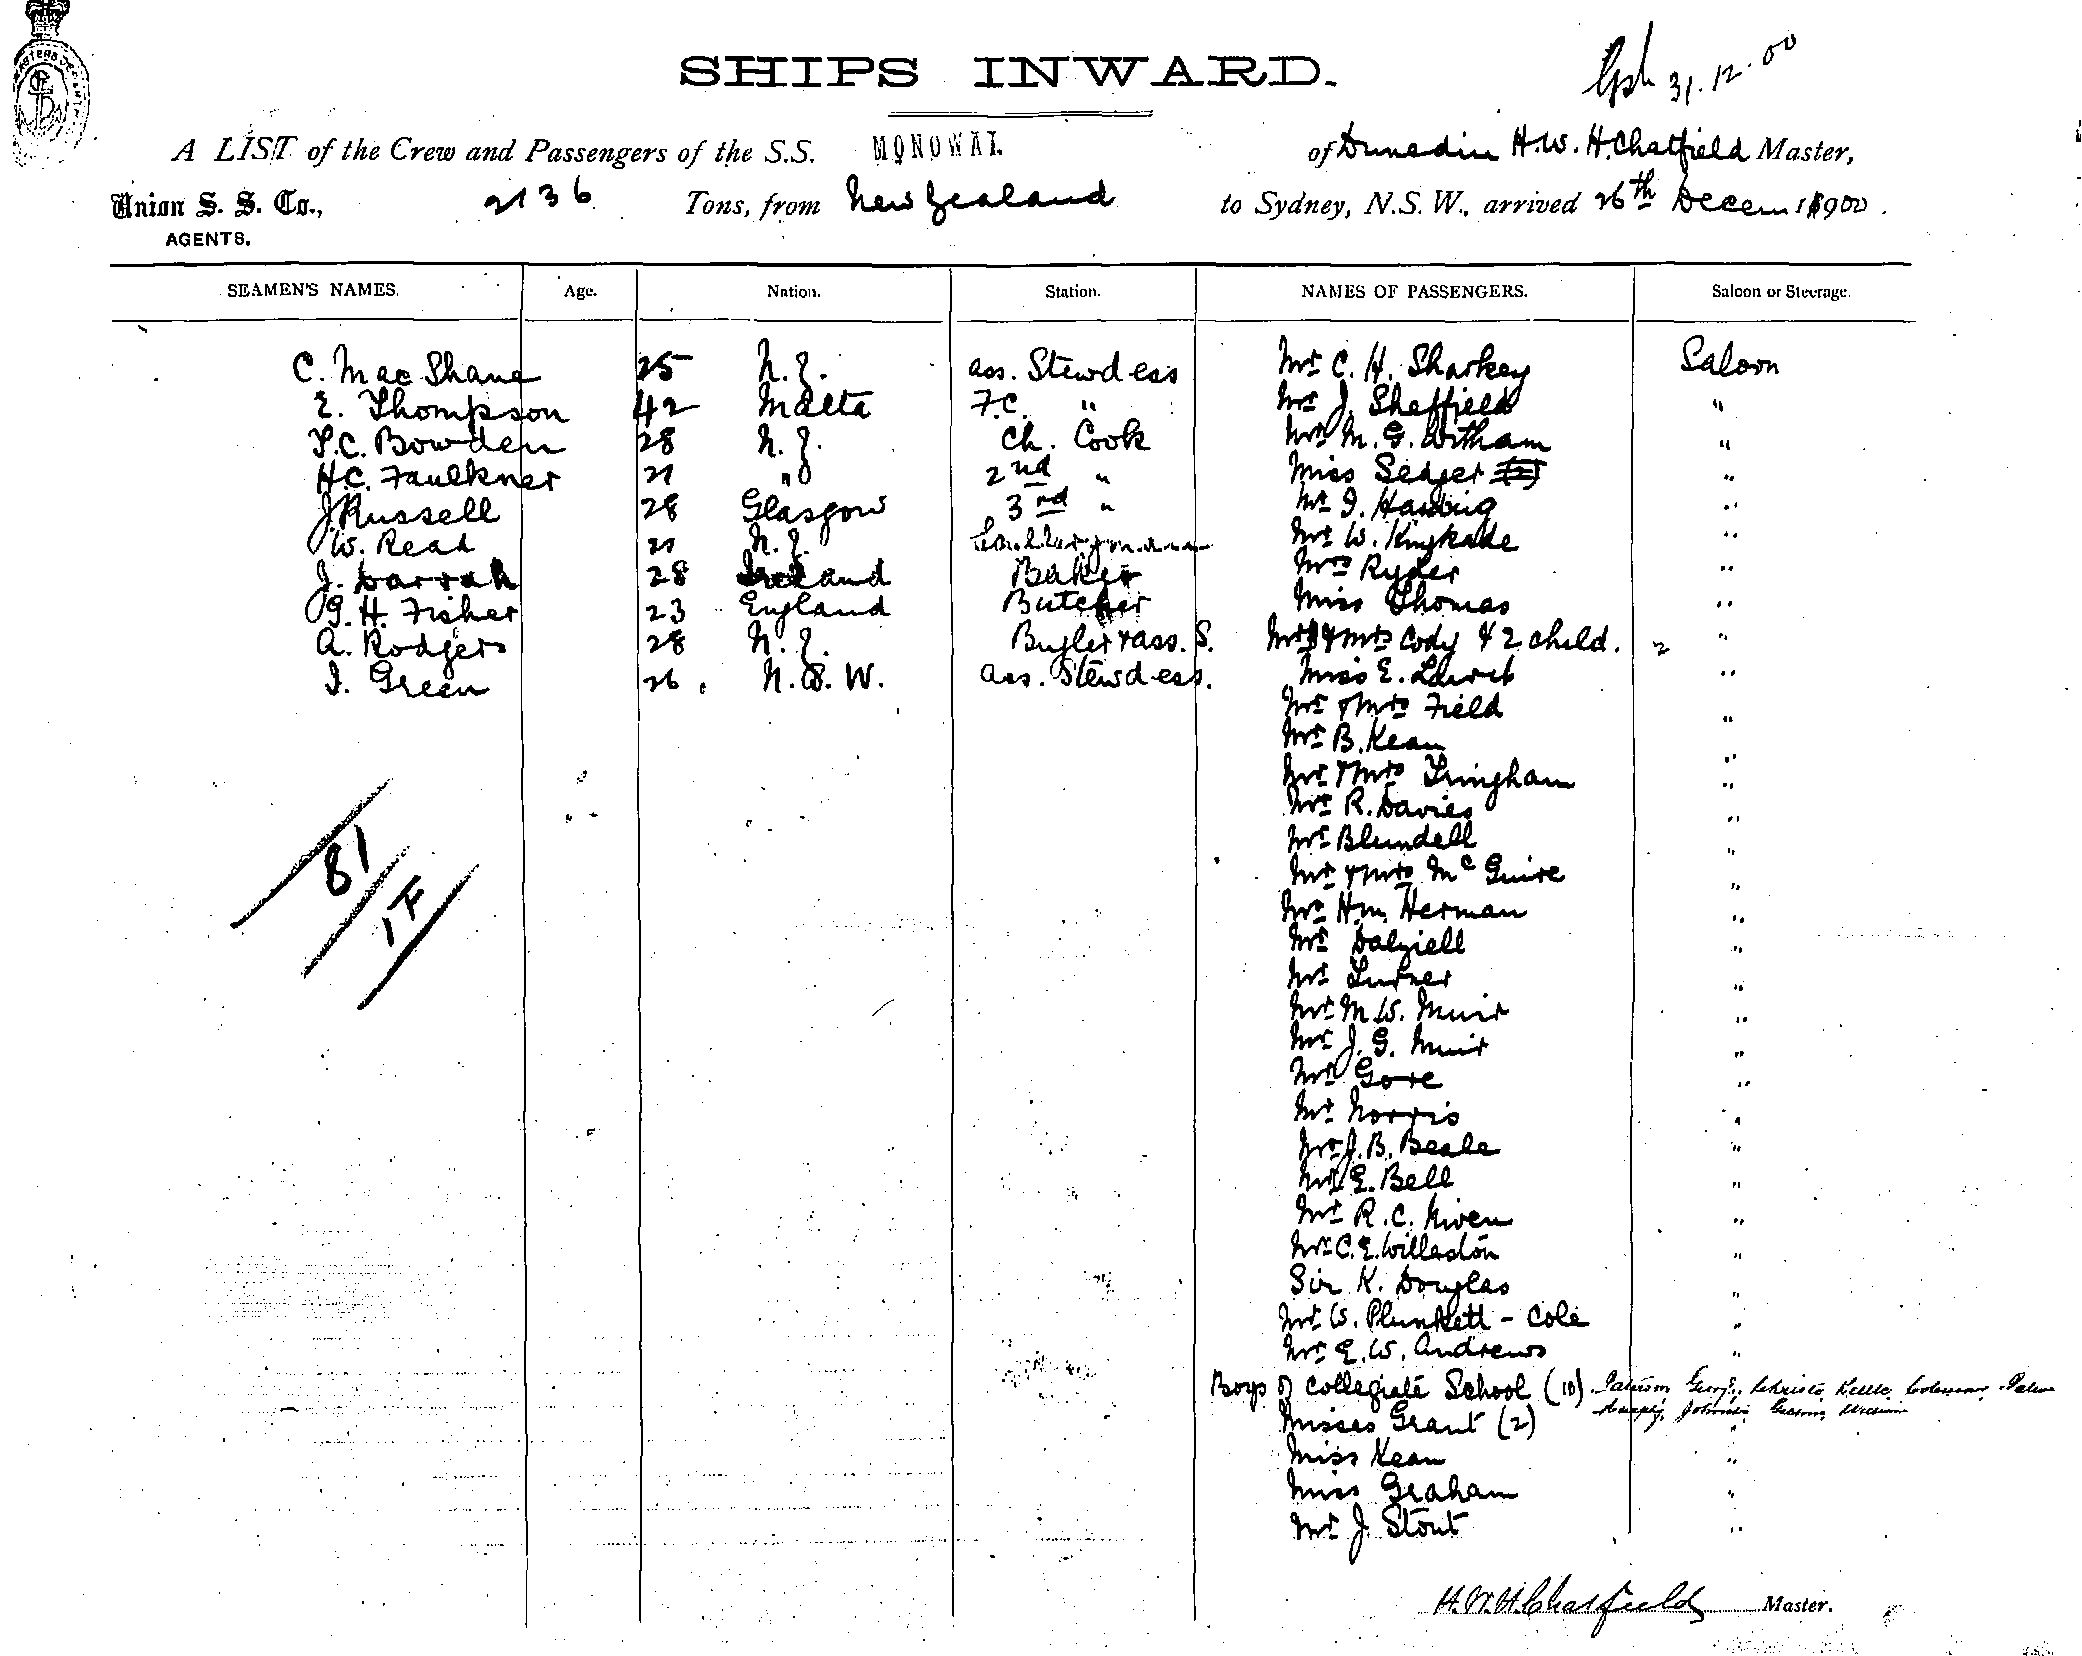 SHIPS INWARD.
31.12.00
A LIST of the Crew and Passengers of the S.S. MONOWAI. of Dunedin H.W.H. Chatfield Master,
Union S. S. Co., 2136 Tons, from New Zealand to Sydney, N.S.W., arrived 26th Decem 1900.
AGENTS.
SEAMEN'S NAMES. Age. Nation. Station. NAMES OF PASSENGERS. Saloon or Steerage.
C. Mac Shane 25 N.Z. ass. Stewdess Mr C. H. Sharkey Saloon
E. Thompson 42 Malta F.C. " Mr J. Sheffield "
T.C. Bowden 28 N.Z. Ch. Cook Mr M. G. Witham "
H.C. Faulkner 21 " 2nd " Miss Seager "
J. Russell 28 Glasgow 3rd " Mr I. "
W. Read 21 N.Z. Mr W. Kingkade "
J. Darrah 28 Ireland Baker Mrs Ryder "
G. H. Fisher 23 England Butcher Miss Thomas "
A. Rodgers 28 N.Z. Bugler & ass. S. Mr & Mrs Cody & 2 child. 2 "
I. Green 26 N.S.W. ass. Stewdess. Miss E. "
Mr & Mrs Field "
Mr B. Kean "
Mr & Mrs Tringham "
Mr R. Davies "
Mr Blundell "
Mr & Mrs McGuire "
81 Mr Hm. Herman "
1F Mr Dalziell "
Mr Turner "
Mr M.W. Muir "
Mr J. G. Muir "
Mr Gore "
Mr Norris "
Mr J. B. Beale "
Mr E. Bell "
Mr R. C. Niven "
Mr C. E. Willasdon "
Sir K. Douglas "
Mr W. Plunkett - Cole "
Mr E. W. Andrews "
Boys of Collegiate School (10)
Misses Grant (2) "
Miss Kean "
Miss Graham "
Mr J. Stout "
H.W.H. Chatfield Master.